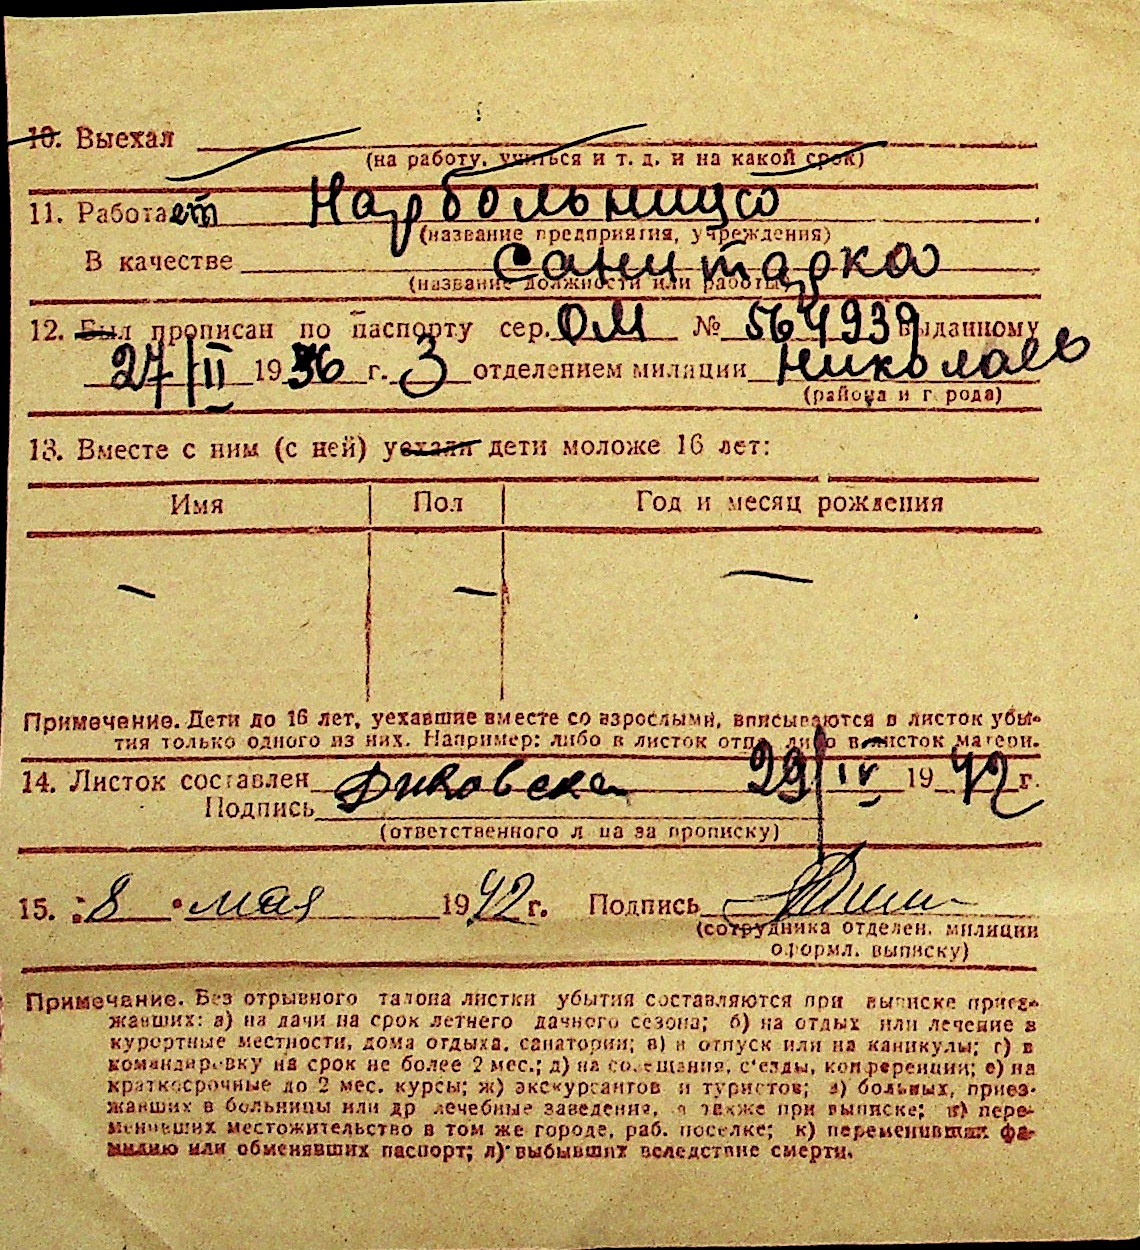 10. Выехал
(на работу, учиться и т. д. и на какой срок)
11. Работает Нарбольница
(название предприятия, учреждения)
В качестве санитарка
(название должности или работы)
12. Был прописан по паспорту сер. ОМ № 564939 выданному
27/II 1936 г. 3 отделением милиции Николаев
(района и города)
13. Вместе с ним (с ней) уехали дети моложе 16 лет:
Имя Пол Год и месяц рождения
— — —
Примечание. Дети до 16 лет, уехавшие вместе со взрослыми, вписываются в листок убы-
тия только одного из них. Например: либо в листок отца, либо в листок матери.
14. Листок составлен 29/IV 1942 г.
Подпись
(ответственного лица за прописку)
15. "8" мая 1942 г. Подпись
(сотрудника отделен. милиции
оформл. выписку)
Примечание. Без отрывного талона листки убытия составляются при выписке приез-
жавших: а) на дачи на срок летнего дачного сезона; б) на отдых или лечение в
курортные местности, дома отдыха, санатории; в) в отпуск или на каникулы; г) в
командировку на срок не более 2 мес.; д) на совещания, с'езды, конференции; е) на
краткосрочные до 2 мес. курсы; ж) экскурсантов и туристов; з) больных, приез-
жавших в больницы или др лечебные заведения, а также при выписке; и) пере-
менивших местожительство в том же городе, раб. поселке; к) переменивших фа-
милию или обменявших паспорт; л) выбывших вследствие смерти.